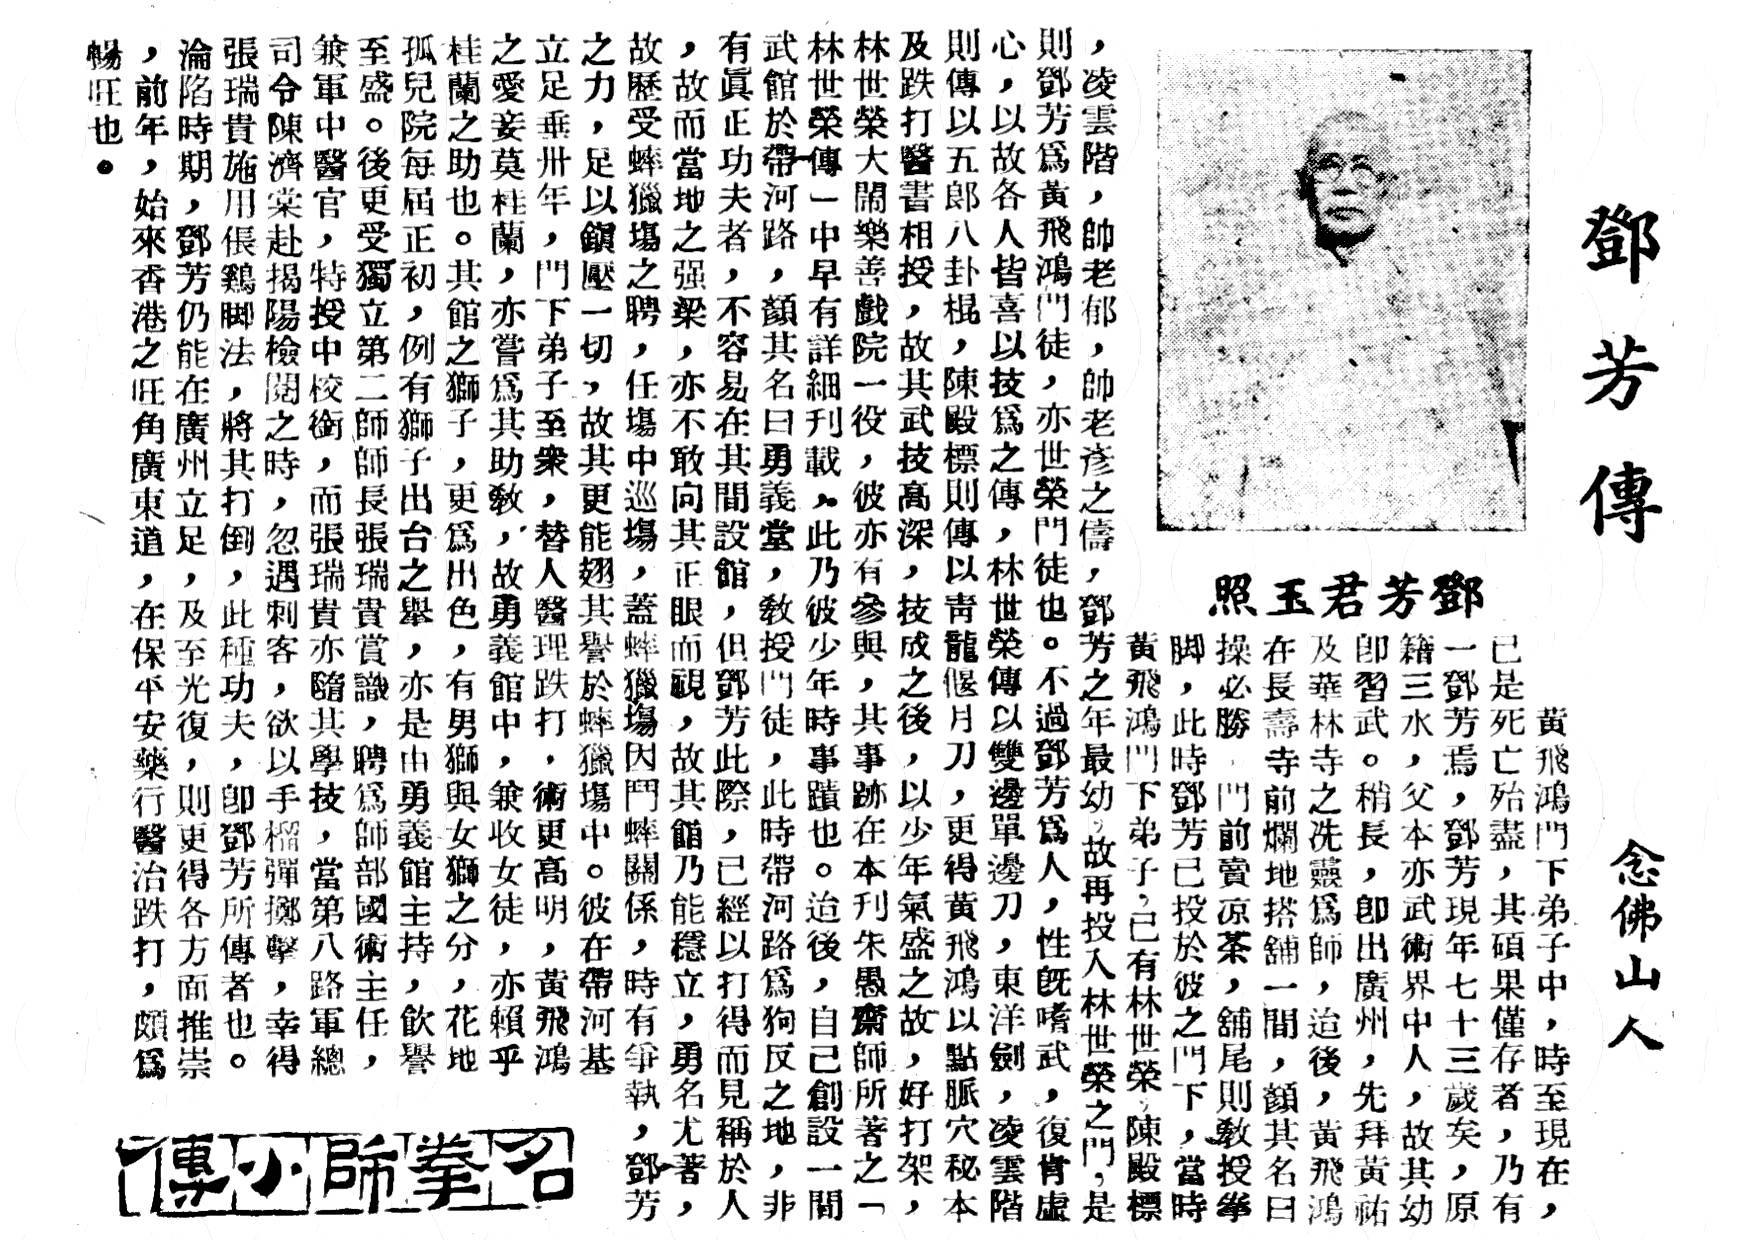 鄧芳傳
念佛山人
鄧芳君玉照
黃飛鴻門下弟子中，時至現在，
已是死亡殆盡，其碩果僅存者，乃有
一鄧芳焉，鄧芳現年七十三歲矣，原
籍三水，父本亦武術界中人，故其幼
卽習武。稍長，卽出廣州，先拜黃祐
及華林寺之冼靈爲師，迨後，黃飛鴻
在長壽寺前爛地搭舖一間，顏其名曰
操必勝，門前賣凉茶，舖尾則敎授拳
脚，此時鄧芳已投於彼之門下，當時
黃飛鴻門下弟子，已有林世榮，陳殿標
，凌雲階，帥老郁，帥老彥之儔，鄧芳之年最幼，故再投入林世榮之門，是
則鄧芳爲黃飛鴻門徒，亦世榮門徒也。不過鄧芳爲人，性旣嗜武，復肯虛
心，以故各人皆喜以技爲之傳，林世榮傳以雙邊單邊刀，東洋劍，凌雲階
則傳以五郎八卦棍，陳殿標則傳以靑龍偃月刀，更得黃飛鴻以點脈穴秘本
及跌打醫書相授，故其武技高深，技成之後，以少年氣盛之故，好打架，
林世榮大鬧樂善戲院一役，彼亦有參與，其事跡在本刊朱愚齋師所著之「
林世榮傳」中早有詳細刊載，此乃彼少年時事蹟也。迨後，自己創設一間
武館於帶河路，顏其名曰勇義堂，敎授門徒，此時帶河路爲狗反之地，非
有眞正功夫者，不容易在其間設館，但鄧芳此際，已經以打得而見稱於人
，故而當地之强梁，亦不敢向其正眼而視，故其館乃能穩立，勇名尤著，
故歷受蟀獵塲之聘，任塲中巡塲，蓋蟀獵塲因鬥蟀關係，時有爭執，鄧芳
之力，足以鎭壓一切，故其更能翅其譽於蟀獵塲中。彼在帶河基
立足垂卅年，門下弟子至衆，替人醫理跌打，術更高明，黃飛鴻
之愛妾莫桂蘭，亦嘗爲其助敎，故勇義館中，兼收女徒，亦賴乎
桂蘭之助也。其館之獅子，更爲出色，有男獅與女獅之分，花地
孤兒院每屆正初，例有獅子出台之舉，亦是由勇義館主持，飮譽
至盛。後更受獨立第二師師長張瑞貴賞識，聘爲師部國術主任，
兼軍中醫官，特授中校銜，而張瑞貴亦隨其學技，當第八路軍總
司令陳濟棠赴揭陽檢閱之時，忽遇刺客，欲以手榴彈擲擊，幸得
張瑞貴施用倀鷄脚法，將其打倒，此種功夫，卽鄧芳所傳者也。
淪陷時期，鄧芳仍能在廣州立足，及至光復，則更得各方面推崇
，前年，始來香港之旺角廣東道，在保平安藥行醫治跌打，頗爲
暢旺也。
名拳師小傳